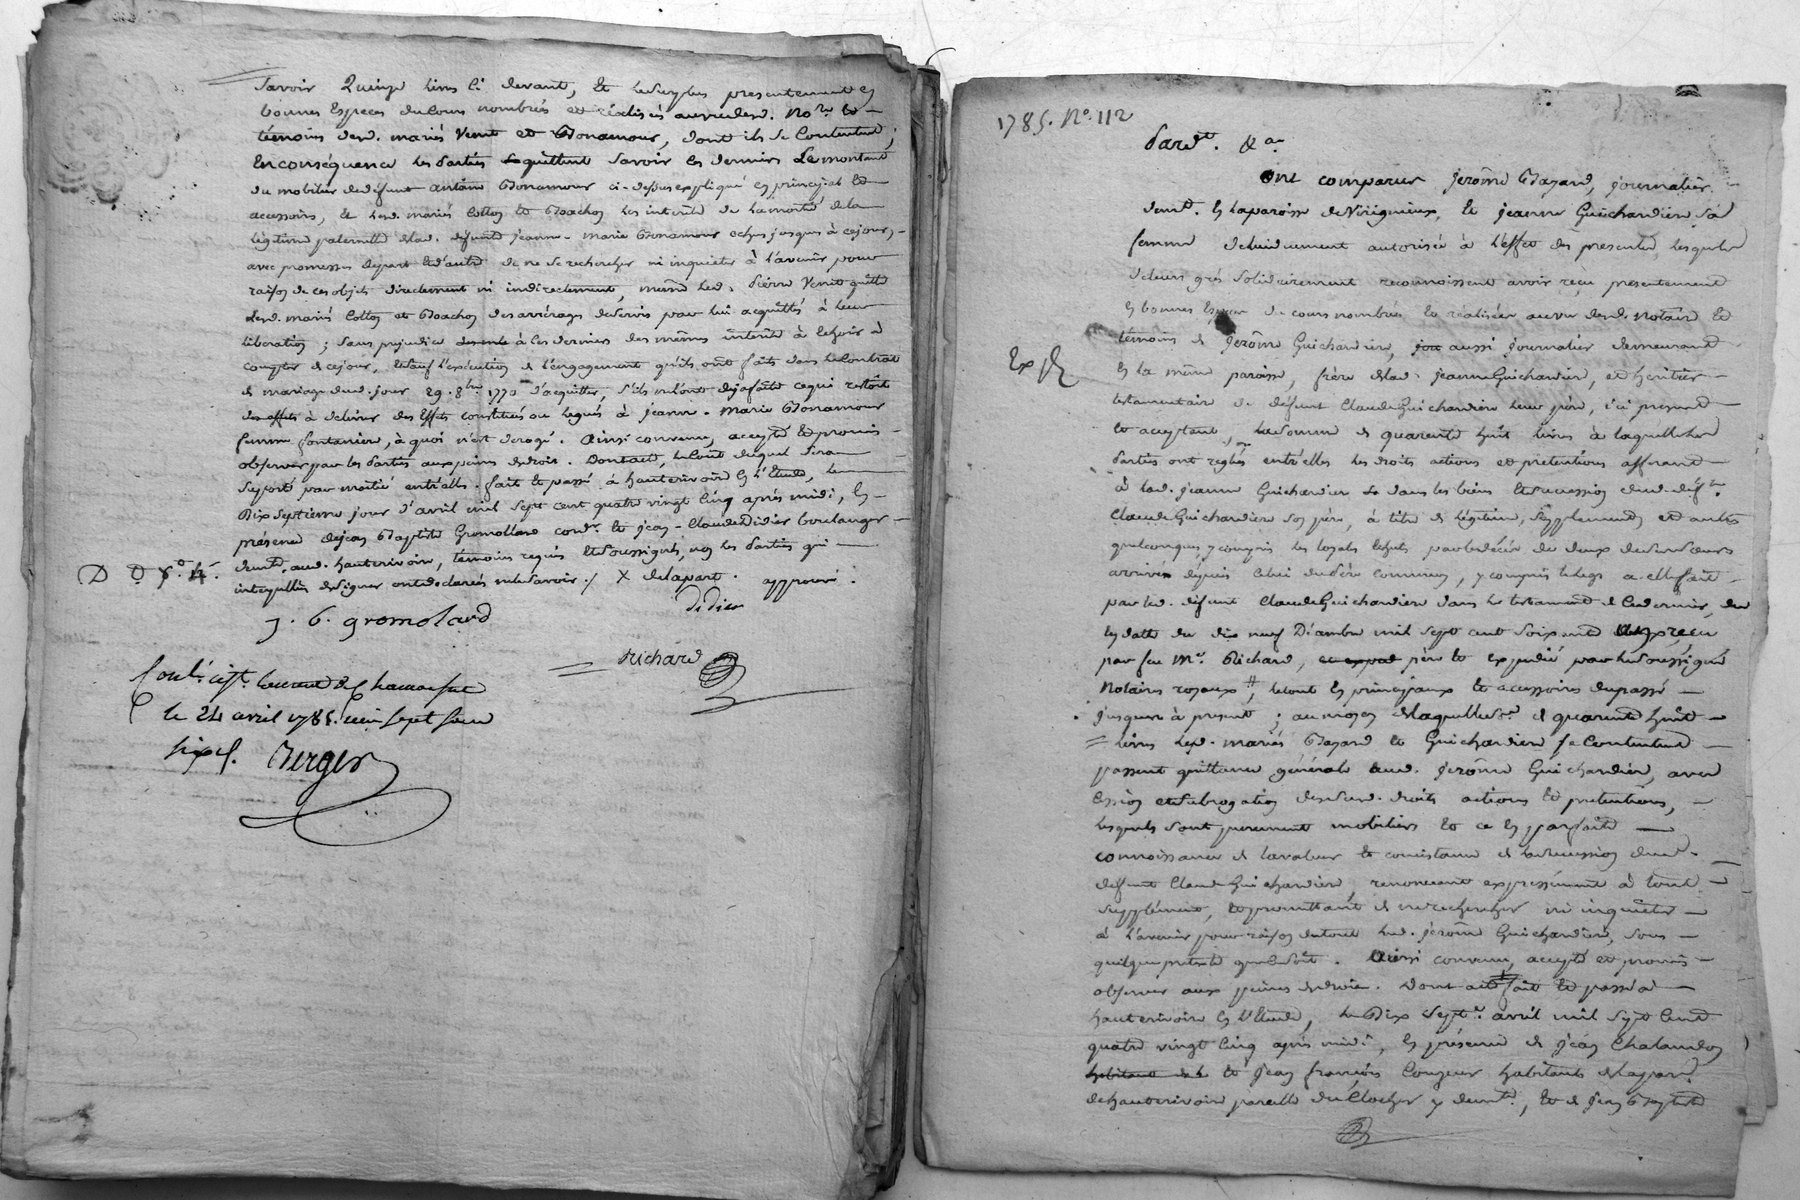 savoir Quinze livres ci devant, et le surplus presentement en
bonnes Especes du cours nombrées et réalisés au vu desd. No.re et
témoins desd. mariés Venit et Bonamour, dont ils se Contentent;
En conséquence les parties se quittent savoir les derniers Le montant
du mobilier dudéfunt antoine Bonamour ci-dessus expliqué en principal et
accessoires, et lesd. mariés Collon et Boachon les intérêts de la moitié de la
légitime paternelle de lad. défunte jeanne-marie Bonamour echus jusques à cejour,
avec promesses depart et d'autre de ne se rechercher ni inquieter à l'avenir pour
raison de ces objets directement ni indirectement, même led. pierre Venit quitte
lesd. mariés Collon et Boachon des arrérages de servis pour lui acquittés à leur
libération; sans prejudice à ces derniers des mêmes intérêts à échoir à
compter de cejour, et sauf l'exécution de l'engagement qu'ils ont faits dans le Contrat
de mariage dud. jour 29. 8.bre 1770 d'acquitter, s'ils ne l'ont deja fait ce qui restoit
des effets à delivrer des Effets constitués ou legués à jeanne-marie Bonamour
femme fontanier, à quoi n'est derogé. Ainsi convenu, accepté et promis
observer par les parties aux peines de droit. Dont acte, le cout duquel sera
supporté par moitié entr'elles. fait et passé à hauterivoire en l'Etude, le
Dix septieme jour d'avril mil sept cent quatre vingt cinq après midi, En
présence de jean Baptiste Gromollard cord.r et jean-Claude Didier boulanger
demt. aud. hauterivoire, témoins requis et soussignés, non les parties qui
interpellées de signer ont declarés ne le savoir ./ X de la part. approuvé.
D D
didier
j. b. gromolard
Richard
Con.lé
le 24 avril 1785. reçu sept sous
six d. Berger
1785. No. 112
Pard.t &a.
Ont comparus jerôme Bazard, journalier
demt. en la paroisse de Virigneux, et jeanne Guichardière sa
femme deluiduement autorisée à l'effet des presentes, lesquels
de leurs grés solidairement reconnoissent avoir reçu presentement
en bonnes Especes de cours nombrées et réalisées au vu desd. Notaire et
témoins de jerôme Guichardière, aussi journalier demeurant
Exp.
en la même paroisse, frère de lad. jeanne Guichardière, et heritier
testamentaire de défunt Claude Guichardière leur père, ici present
et acceptant, la somme de quarente huit livres à laquelle les
parties ont reglés entr'elles les droits actions et prétentions afferant
à lad. jeanne Guichardière dans les biens et succession dud. déf.t
Claude Guichardière son père, à titre de légitime, supplément et autres
quelconques, y compris les legats échuts par le décès de deux de leurs sœurs
arrivés depuis celui du père commun, y compris le legs a elle fait
par led. défunt Claude Guichardière dans le testament de ce dernier, du
en datte du dix neuf Décembre mil sept cent soixante reçu
par feu Me. Richard, père et expedié par le soussigné
Notaires royaux, le tout en principaux et accessoires du passé
jusques à present; au moyen de laquelle so.e de quarente huit
livres lesd. mariés Bazard et Guichardière se Contentent
passent quittance générale aud. jerôme Guichardière, avec
cession et subrogation desusd. droits actions et pretentions,
lesquels sont purement mobiliers et ce en parfaite
connoissance de la valeur et consistance de la succession dud.
défunt Claude Guichardière, renonceant expressément à tout
supplément, et promettant de ne rechercher ni inquieter
à l'avenir pour raison du tout led. jerôme Guichardière, sous
quelque pretexte que ce soit. Ainsi convenu, accepté et promis
observer aux peines de droit. Dont acte fait et passé à
hauterivoire en l'Etude, le Dix sept.e avril mil sept cent
quatre vingt cinq après midi, En présence de jean Chalandon
habitant de h et jean françois Couzeur habitants de la par.
de hauterivoire parcelle du Clocher y demt., et de jean Baptiste